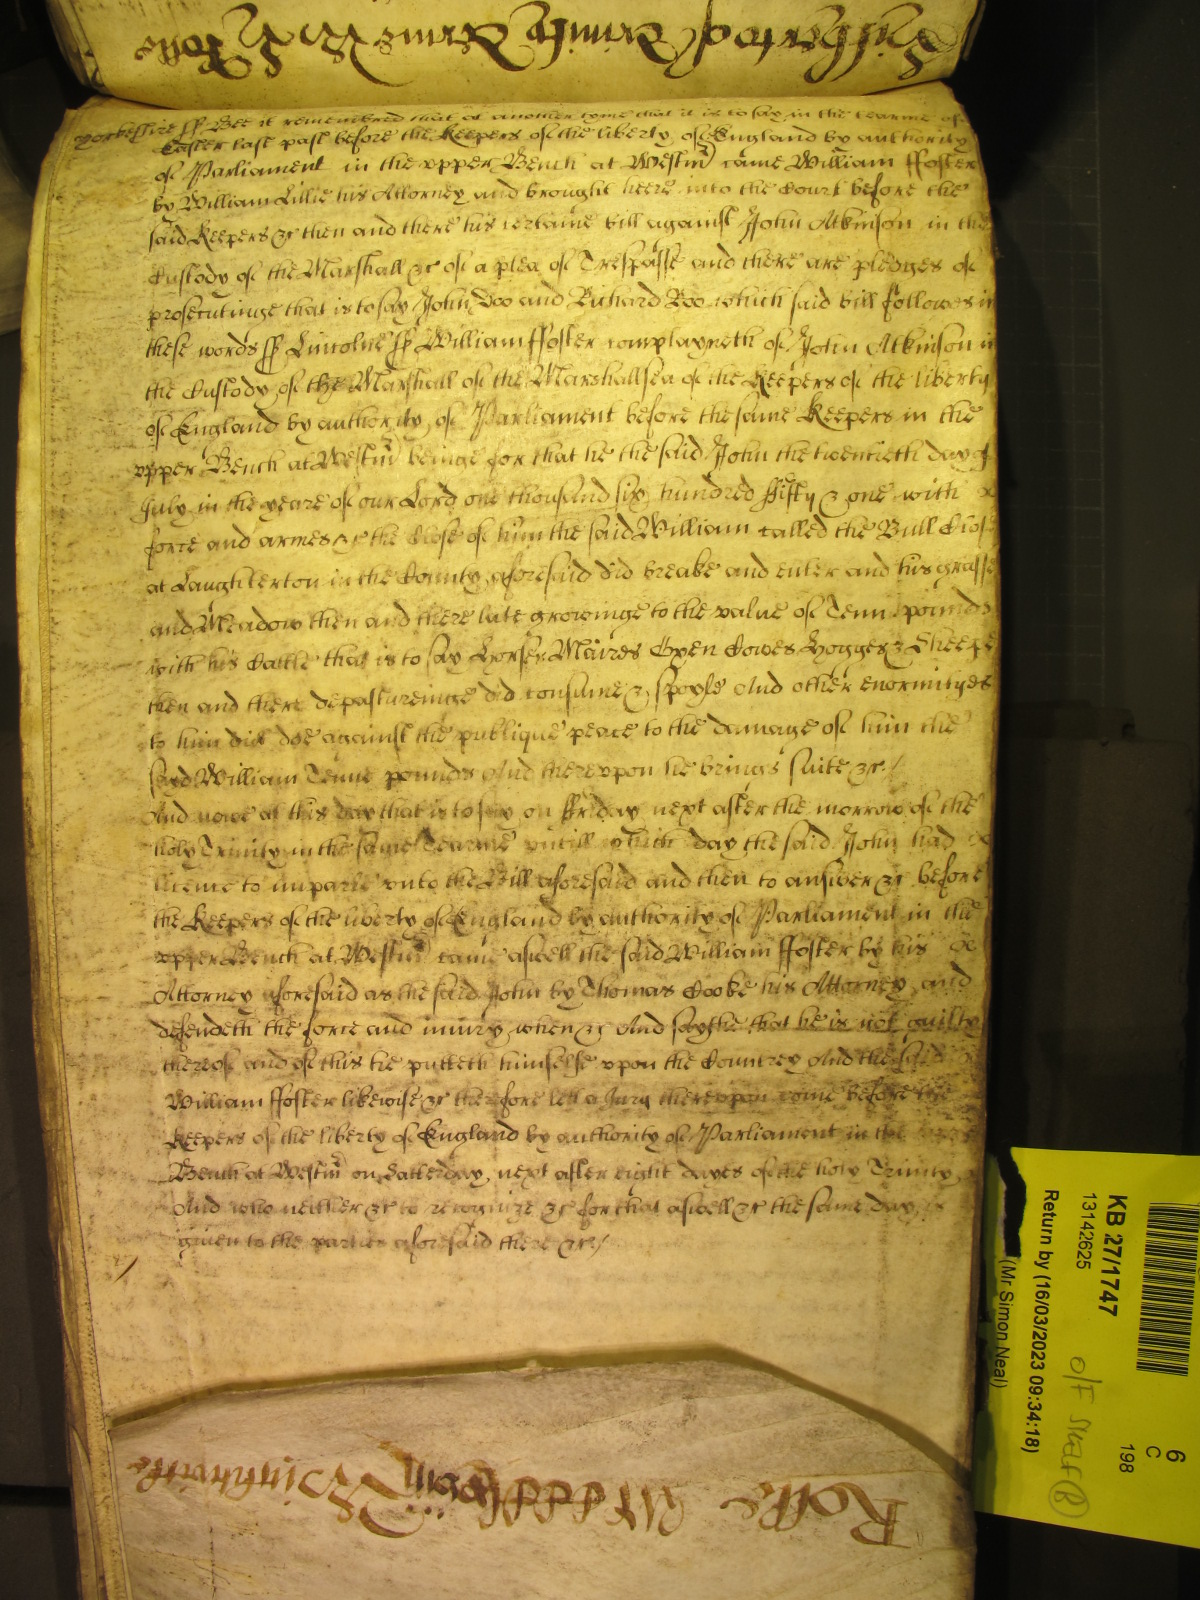 yorkeshire ss Bee it remembred that at another tyme that it is to say in the tearme of
Easter last past before the Keepers of the liberty of England by authority
of Parliament in the vpper Bench at Westm came William ffoster
by William Lillie his Attorney and brought heere into the Court before the
said Keepers &c then and there his certaine bill against John Atkinson in the
Custody of the Marshall &c of a plea of Trespasse and there are pledges of
prosecutinge that is to say John Doo and Richard Roo which said bill followes in
these words ss Lincolne ss William ffoster complayneth of John Atkinson in
the Custody of the Marshall of the Marshallsea of the Keepers of the liberty
of England by authority of Parliament before the same Keepers in the
vpper Bench at Westm beinge for that he the said John the twentieth day of
July in the yeare of our Lord one thousand six hundred ffifty & one with
force and armes &c the Close of him the said William called the Bull Close
at Laughterton in the County aforesaid did breake and enter and his grasse
and Meadow then and there late growinge to the value of Tenn pounds
with his Cattle that is to say Horses Maires Oxen Cowes Hogges & Sheepe
then and there depastureinge did consume & spoyle And other enormityes
to him did doe against the publique peace to the damage of him the
said William Tenne pounds And therevpon he brings suite &c
And nowe at this day that is to say on ffriday next after the morrow of the
holy Trinity in the same Tearme vntill which day the said John had
licence to imparle vnto the Bill aforesaid and then to answer &c before
the Keepers of the liberty of England by authority of Parliament in the
vpper Bench at Westm came aswell the said William ffoster by his
Attorney aforesaid as the said John by Thomas Cooke his Attorney and
defendeth the force and iniury when &c And saythe that he is not guilty
thereof and of this he putteth himselfe vpon the Countrey And the said
William ffoster likewise &c therefore lett a Jury therevpon come before the
Keepers of the liberty of England by authority of Parliament in the vpper
Bench at Westm on Satterday next after eight dayes of the holy Trinity
And who neither &c to recognize &c for that aswell &c the same day is
giuen to the parties aforesaid there &c
Rolle
KB 27/1747
13142625
Return by (16/03/2023 09:34:18)
(Mr Simon Neal)
6
C
198